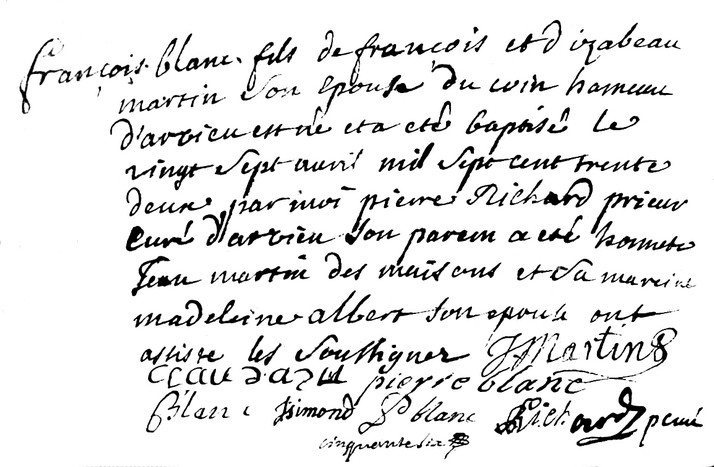 françois blanc fils de françois et d'izabeau
martin son epouse du coin hameau
d'arvieu est né et a eté baptisé le
vingt sept avril mil sept cent trente
deux par moi pierre Richard prieur
curé d'arvieu son parein a eté honnete
Jean martin des maisons et sa mareine
madeleine albert son epouse ont
assiste les soussignez JMartin
pierre blanc
Blanc Simond blanc Richard p curé
cinquante six